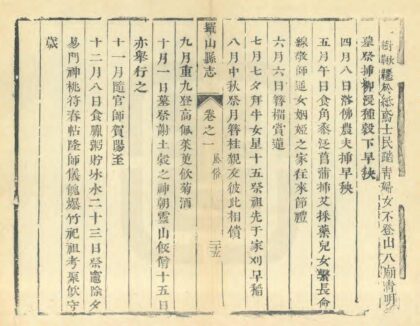 樹鞦韆於士民踏青婦女不登山入廟清明
墓祭插柳浸種穀下早秧
四月八日浴佛農夫插早秧
五月午日食角黍泛菖蒲插艾採藥兒女繫長命
線敬師還女姻婭之家往來節禮
六月六日簪賞蓮
七月七夕拜牛女星十五祭祖先于家刈早稻
八月中秋祭月簪桂親友彼此相饋
羅山縣志
卷之一
風俗
二十五
九月重九登高佩茱萸飲菊酒
十月一日墓祭謝土穀之神朝靈山飯僧十五日
亦舉行之
十一月隨官師賀陽至
十二月八日食臘粥貯冰水二十三日祭竈除夕
易門神桃符春帖隆師儀饋爆竹祀祖考聚飲守
歲